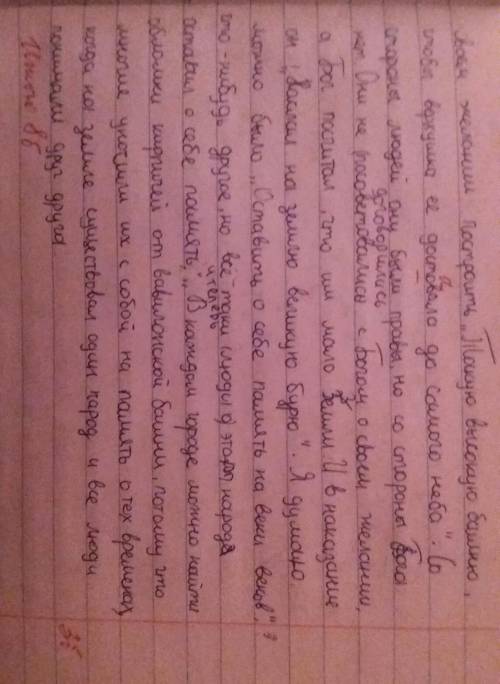 своём желании построить „Такую высокую башню,
чтобы верхушка её доставала до самого неба". Со
стороны людей они были правы, но со стороны Бога
нет. Они не договорились
посоветовались с Богом о своём желании,
а Бог посчитал, что им мало земли. И в наказание
он „Наслал на землю великую бурю". Я думаю
можно было „Оставить о себе память на веки веков",
что-нибудь другое, но всё-таки и теперь (люди) этот народ
оставил о себе память, „В каждом городе можно найти
обломки кирпичей от вавилонской башни, потому что
многие уносили их с собой на память о тех временах,
когда на земле существовал один народ и все люди
понимали друг друга
Итог 8б